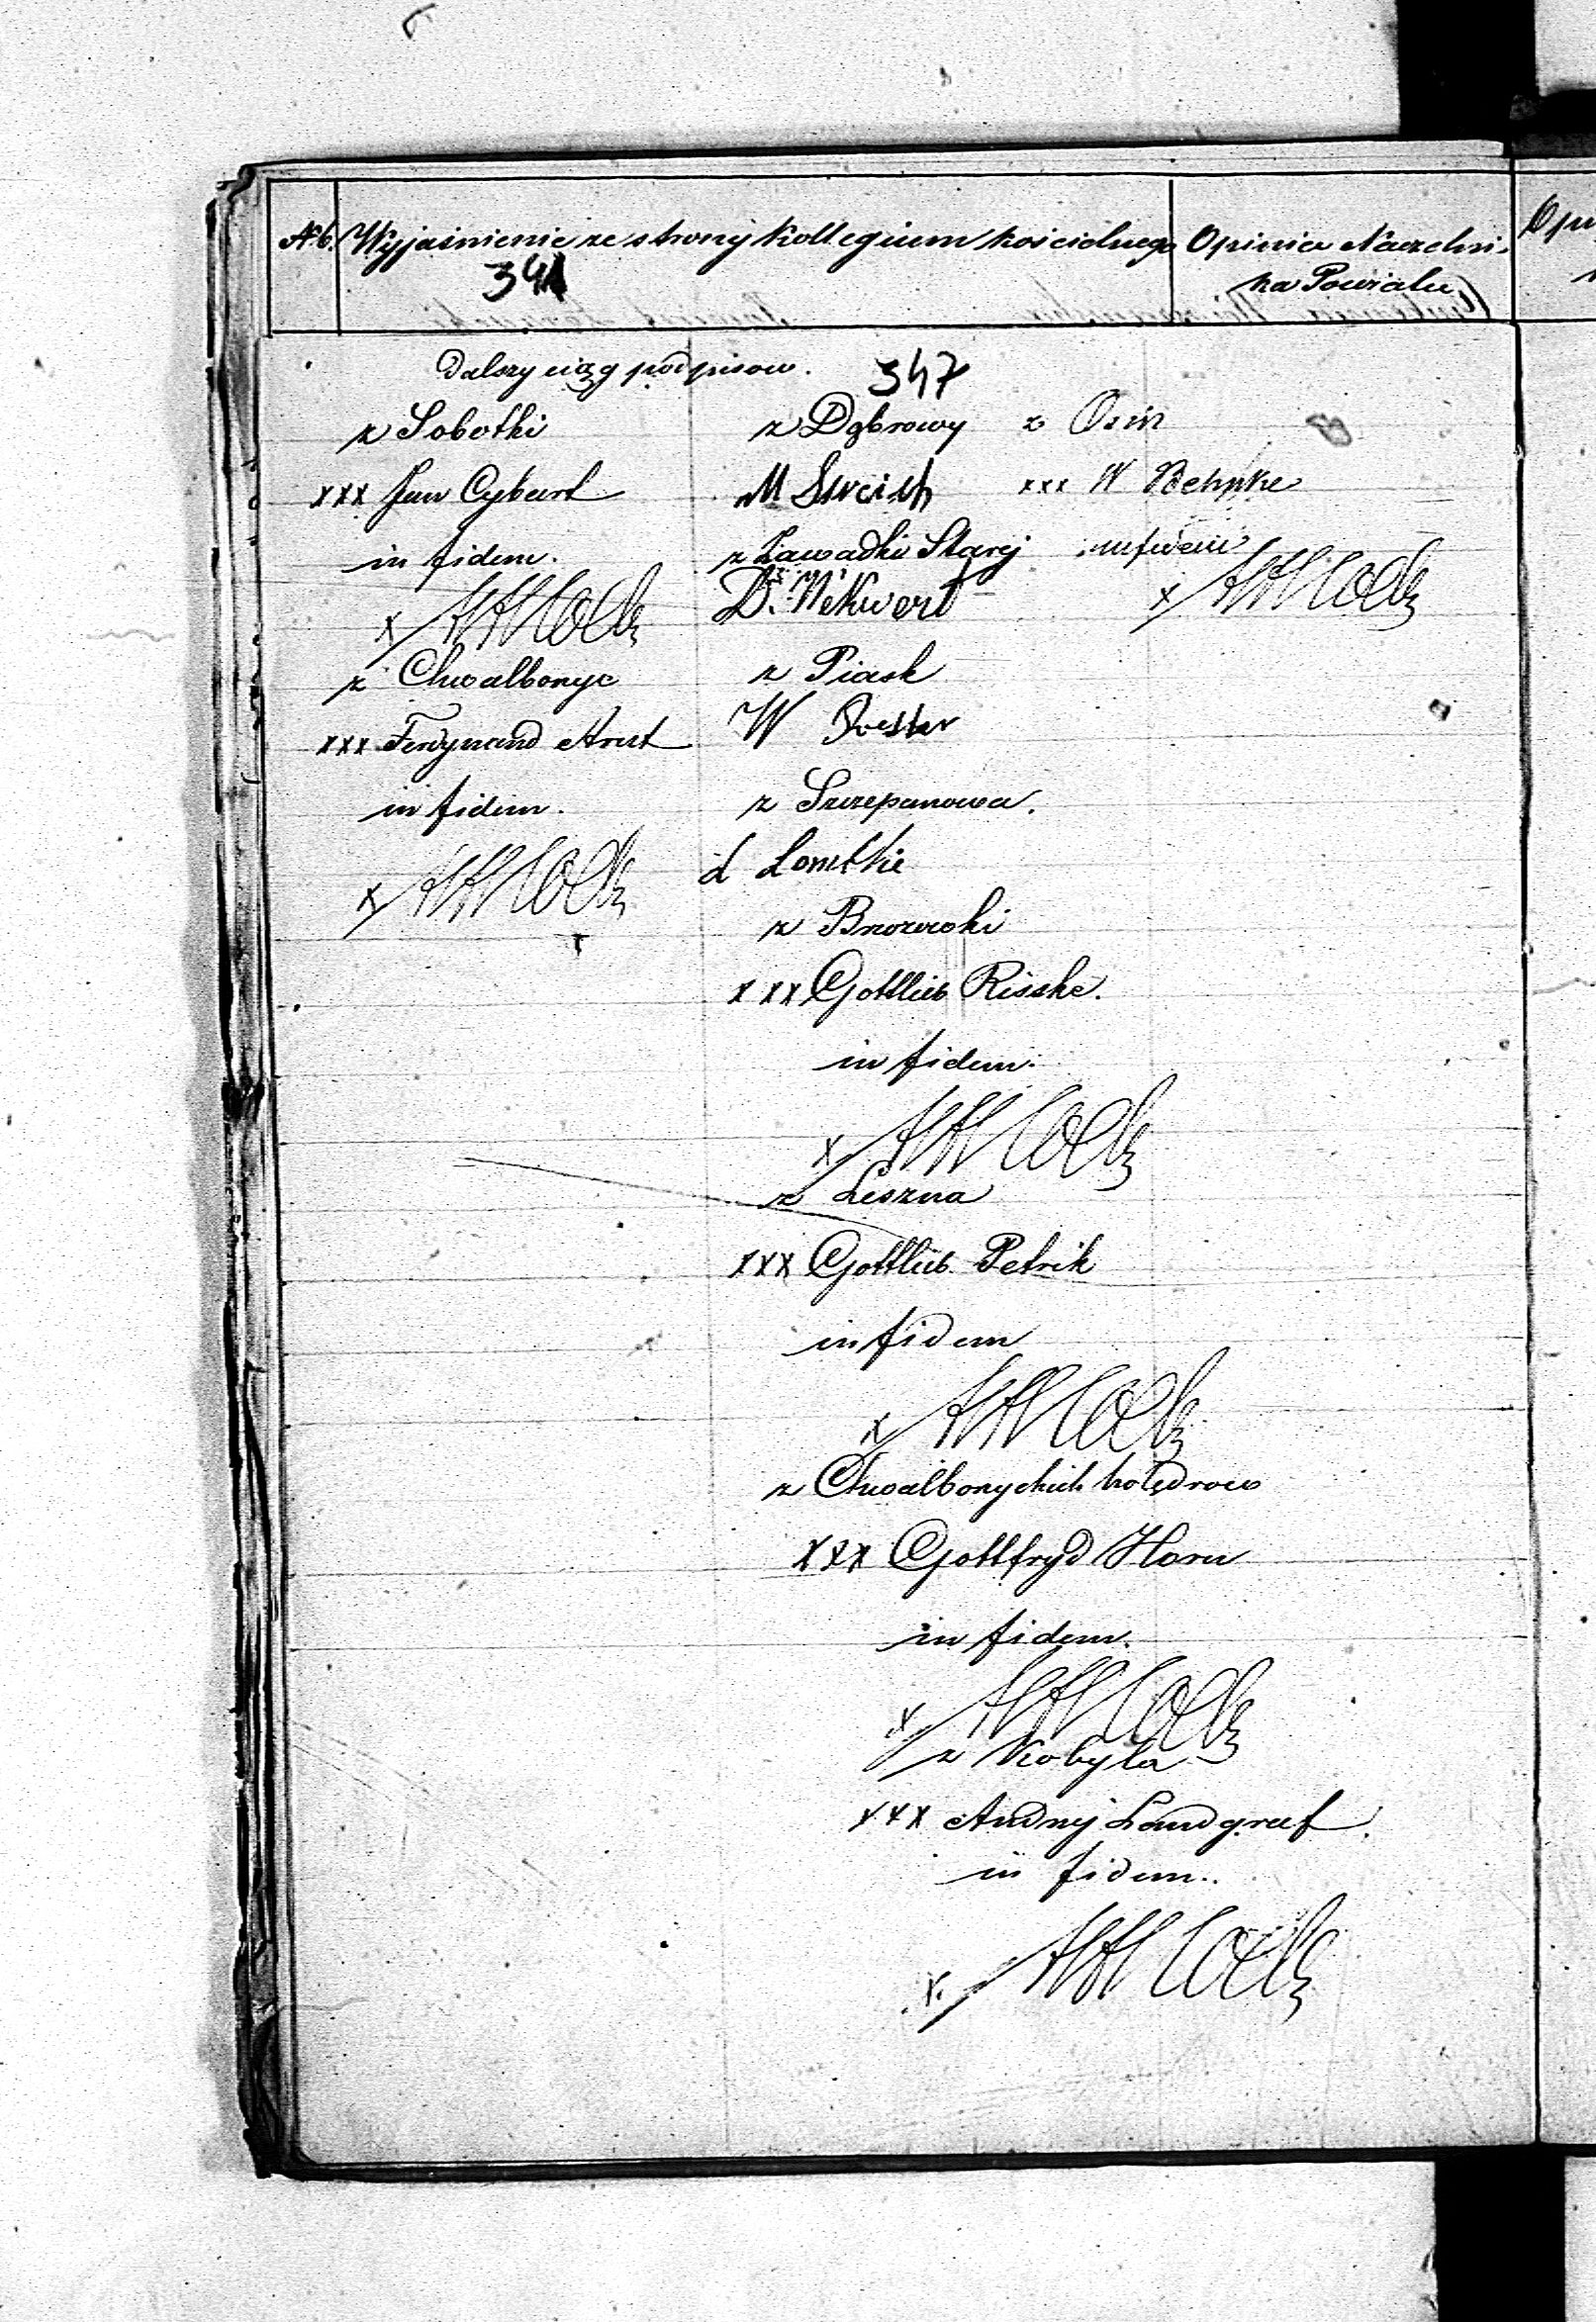 Nb. Wyjaśnienie ze strony Kollegium kościelnego Opinia Naczelni-
ka Powiatu
341
Dalszy ciąg podpisow.
347
z Sobotki
xxx Jan Cybart
in fidem.
x
z Chwalbonyc
xxx Ferdynand Arnt
in fidem.
x
z Dąbrowy
z Zawadki Starej
D. Wekwert
z Piask
W
z Szczepanowa.
z Brozwoki
xxx Gottlieb Risske.
in fidem.
x
z Leszna
xxx Gottlieb Petrik
in fidem
x
z Chwalbonyckich holędrow
xxx Gottfryd Horn
in fidem.
x
z Kobyla
xxx Andrej Landgraf.
in fidem.
x
z Osin
xxx W Behnke
in fidem
x